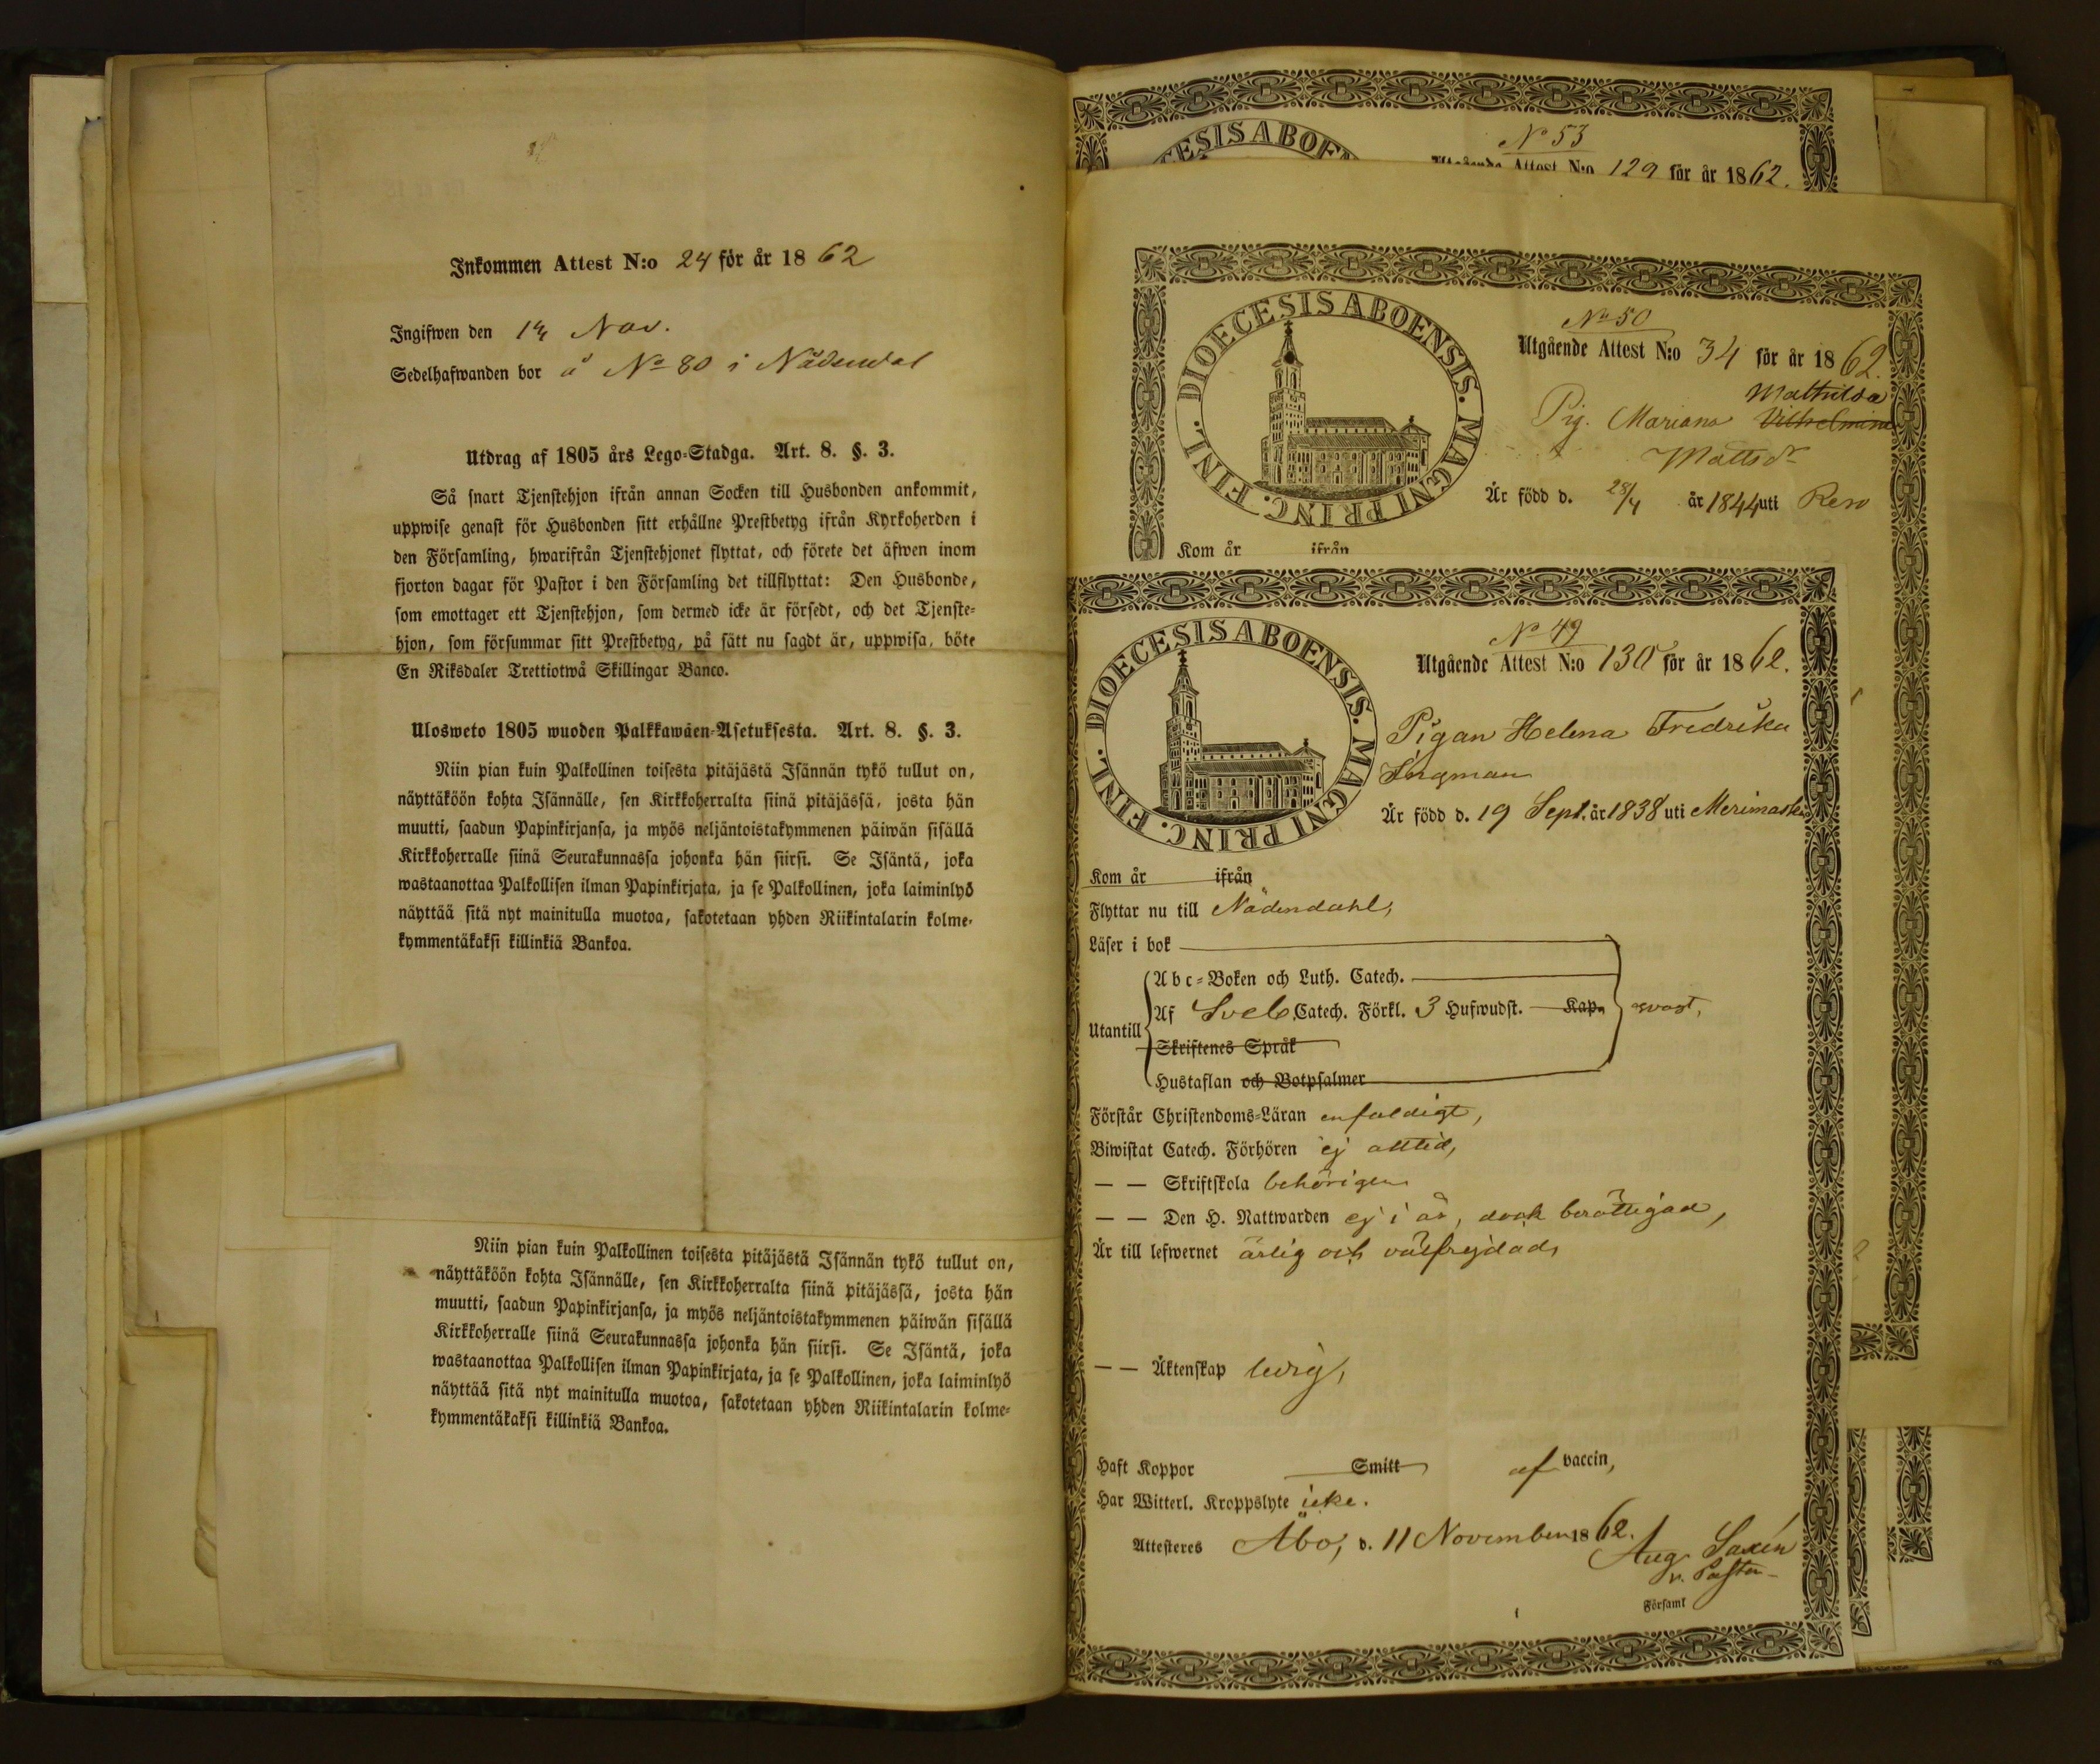 Inkommen Attest N:o 24 för år 1862
Ingifwen den 14 Nov.
Sedelhafwanden bor å No 80 i Nådendal
Utdrag af 1805 års Lego-Stadga. Art. 8. §. 3.
Så snart Tjenstehjon ifrån annan Socken till Husbonden ankommit,
uppwise genast för Husbonden sitt erhållne Prestbetyg ifrån Kyrkoherden i
den Församling, hwarifrån Tjenstehjonet flyttat, och förete det äfwen inom
fjorton dagar för Pastor i den Församling det tillflyttat: Den Husbonde,
som emottager ett Tjenstehjon, som dermed icke är försedt, och det Tjenste-
hjon, som försummar sitt Prestbetyg, på sätt nu sagdt är, uppwisa, böte
En Riksdaler Trettiotwå Skillingar Banco.
Ulosweto 1805 wuoden Palkkawäen-Asetuksesta. Art. 8. §. 3.
Niin pian kuin Palkollinen toisesta pitäjästä Isännän tykö tullut on,
näyttäköön kohta Isännälle, sen Kirkkoherralta siinä pitäjässä, josta hän
muutti, saadun Papinkirjansa, ja myös neljäntoistakymmenen päiwän sisällä
Kirkkoherralle siinä Seurakunnassa johonka hän siirsi. Se Isäntä, joka
wastaanottaa Palkollisen ilman Papinkirjata, ja se Palkollinen, joka laiminlyö
näyttää sitä nyt mainitulla muotoa, sakotetaan yhden Riikintalarin kolme-
kymmentäkaksi killinkiä Bankoa.
Niin pian kuin Palkollinen toisesta pitäjästä Isännän tykö tullut on,
näyttäköön kohta Isännälle, sen Kirkkoherralta siinä pitäjässä, josta hän
muutti, saadun Papinkirjansa, ja myös neljäntoistakymmenen päiwän sisällä
Kirkkoherralle siinä Seurakunnassa johonka hän siirsi. Se Isäntä, joka
wastaanottaa Palkollisen ilman Papinkirjata, ja se Palkollinen, joka laiminlyö
näyttää sitä nyt mainitulla muotoa, sakotetaan yhden Riikintalarin kolme-
kymmentäkaksi killinkiä Bankoa.
ESIS ABOEN
No 53
Utgående Attest N:o 129 för år 1862.
DIOECESIS ABOENSIS. MAGNI PRINC. FINL.
No 50
Utgående Attest N:o 34 för år 1862.
Mathilda
Pig. Mariana Vilhelmina
Mattsdr
Är född d. 28/4 år 1844 uti Reso
Kom år ifrån
DIOECESIS ABOENSIS. MAGNI PRINC. FINL.
No 49
Utgående Attest N:o 130 för år 1862.
Pigan Helena Fredrika
Ingman
Är född d. 19 Sept. år 1838 uti Merimasku
Kom år ifrån
Flyttar nu till Nådendahl,
Läser i bok
Abc-Boken och Luth. Catech.
Utantill
Af Sveb. Catech. Förkl. 3 Hufwudst. Kap.
svagt,
Skriftenes Språk
Hustaflan och Botpsalmer
Förstår Christendoms-Läran enfaldigt,
Biwistat Catech. Förhören ej alltid,
— — Skriftskola behörigen
— — Den H. Nattwarden ej i år, dock berättigad,
Är till lefwernet ärlig och välfrejdad,
— — Äktenskap ledig,
Haft Koppor Smitt af vaccin,
Har Witterl. Kroppslyte icke.
Attesteres Åbo, d. 11 November 1862.
Aug. Saxén
v. Pastor
Församl